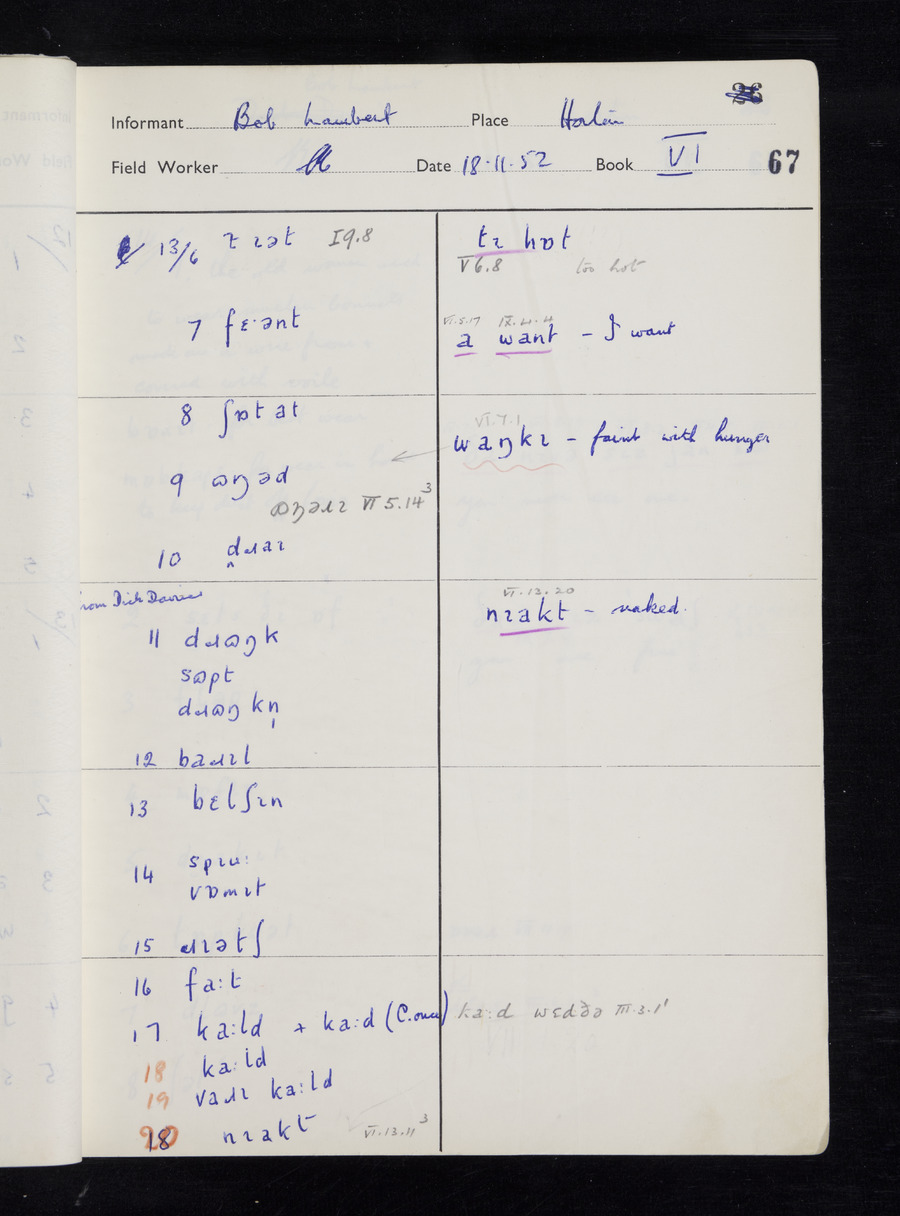 Informant Bob Lambert Place
Field Worker Date 18.11.52 Book VI 67
13/6 ɪət I 9.8
7 fɛ·ənt
8 ʃɒt at
9 ɷŋəd
ɷŋəɹɪ VI 5.14³
10 dɹaɪ
from Dick Davies
11 dɹɷŋk
sɷpt
dɹɷŋkn̩
12 baɹɪl
13 bɛlʃɪn
14 spɪu:
vɒmɪt
15 ɹɪətʃ
16 fa:t
17 ka:ld + ka:d (C. once)
18 ka:ld
19 vaɹɪ ka:ld
18 nɪakt VI.13.11³
tɪ hɒt
V 6.8 too hot
VI.5.17 IX.4.4
a want – I want
VI.7.1
waŋkɪ – faint with hunger
VI.13.20
nɪakt – naked.
ka:d wɛdðə III.3.1'